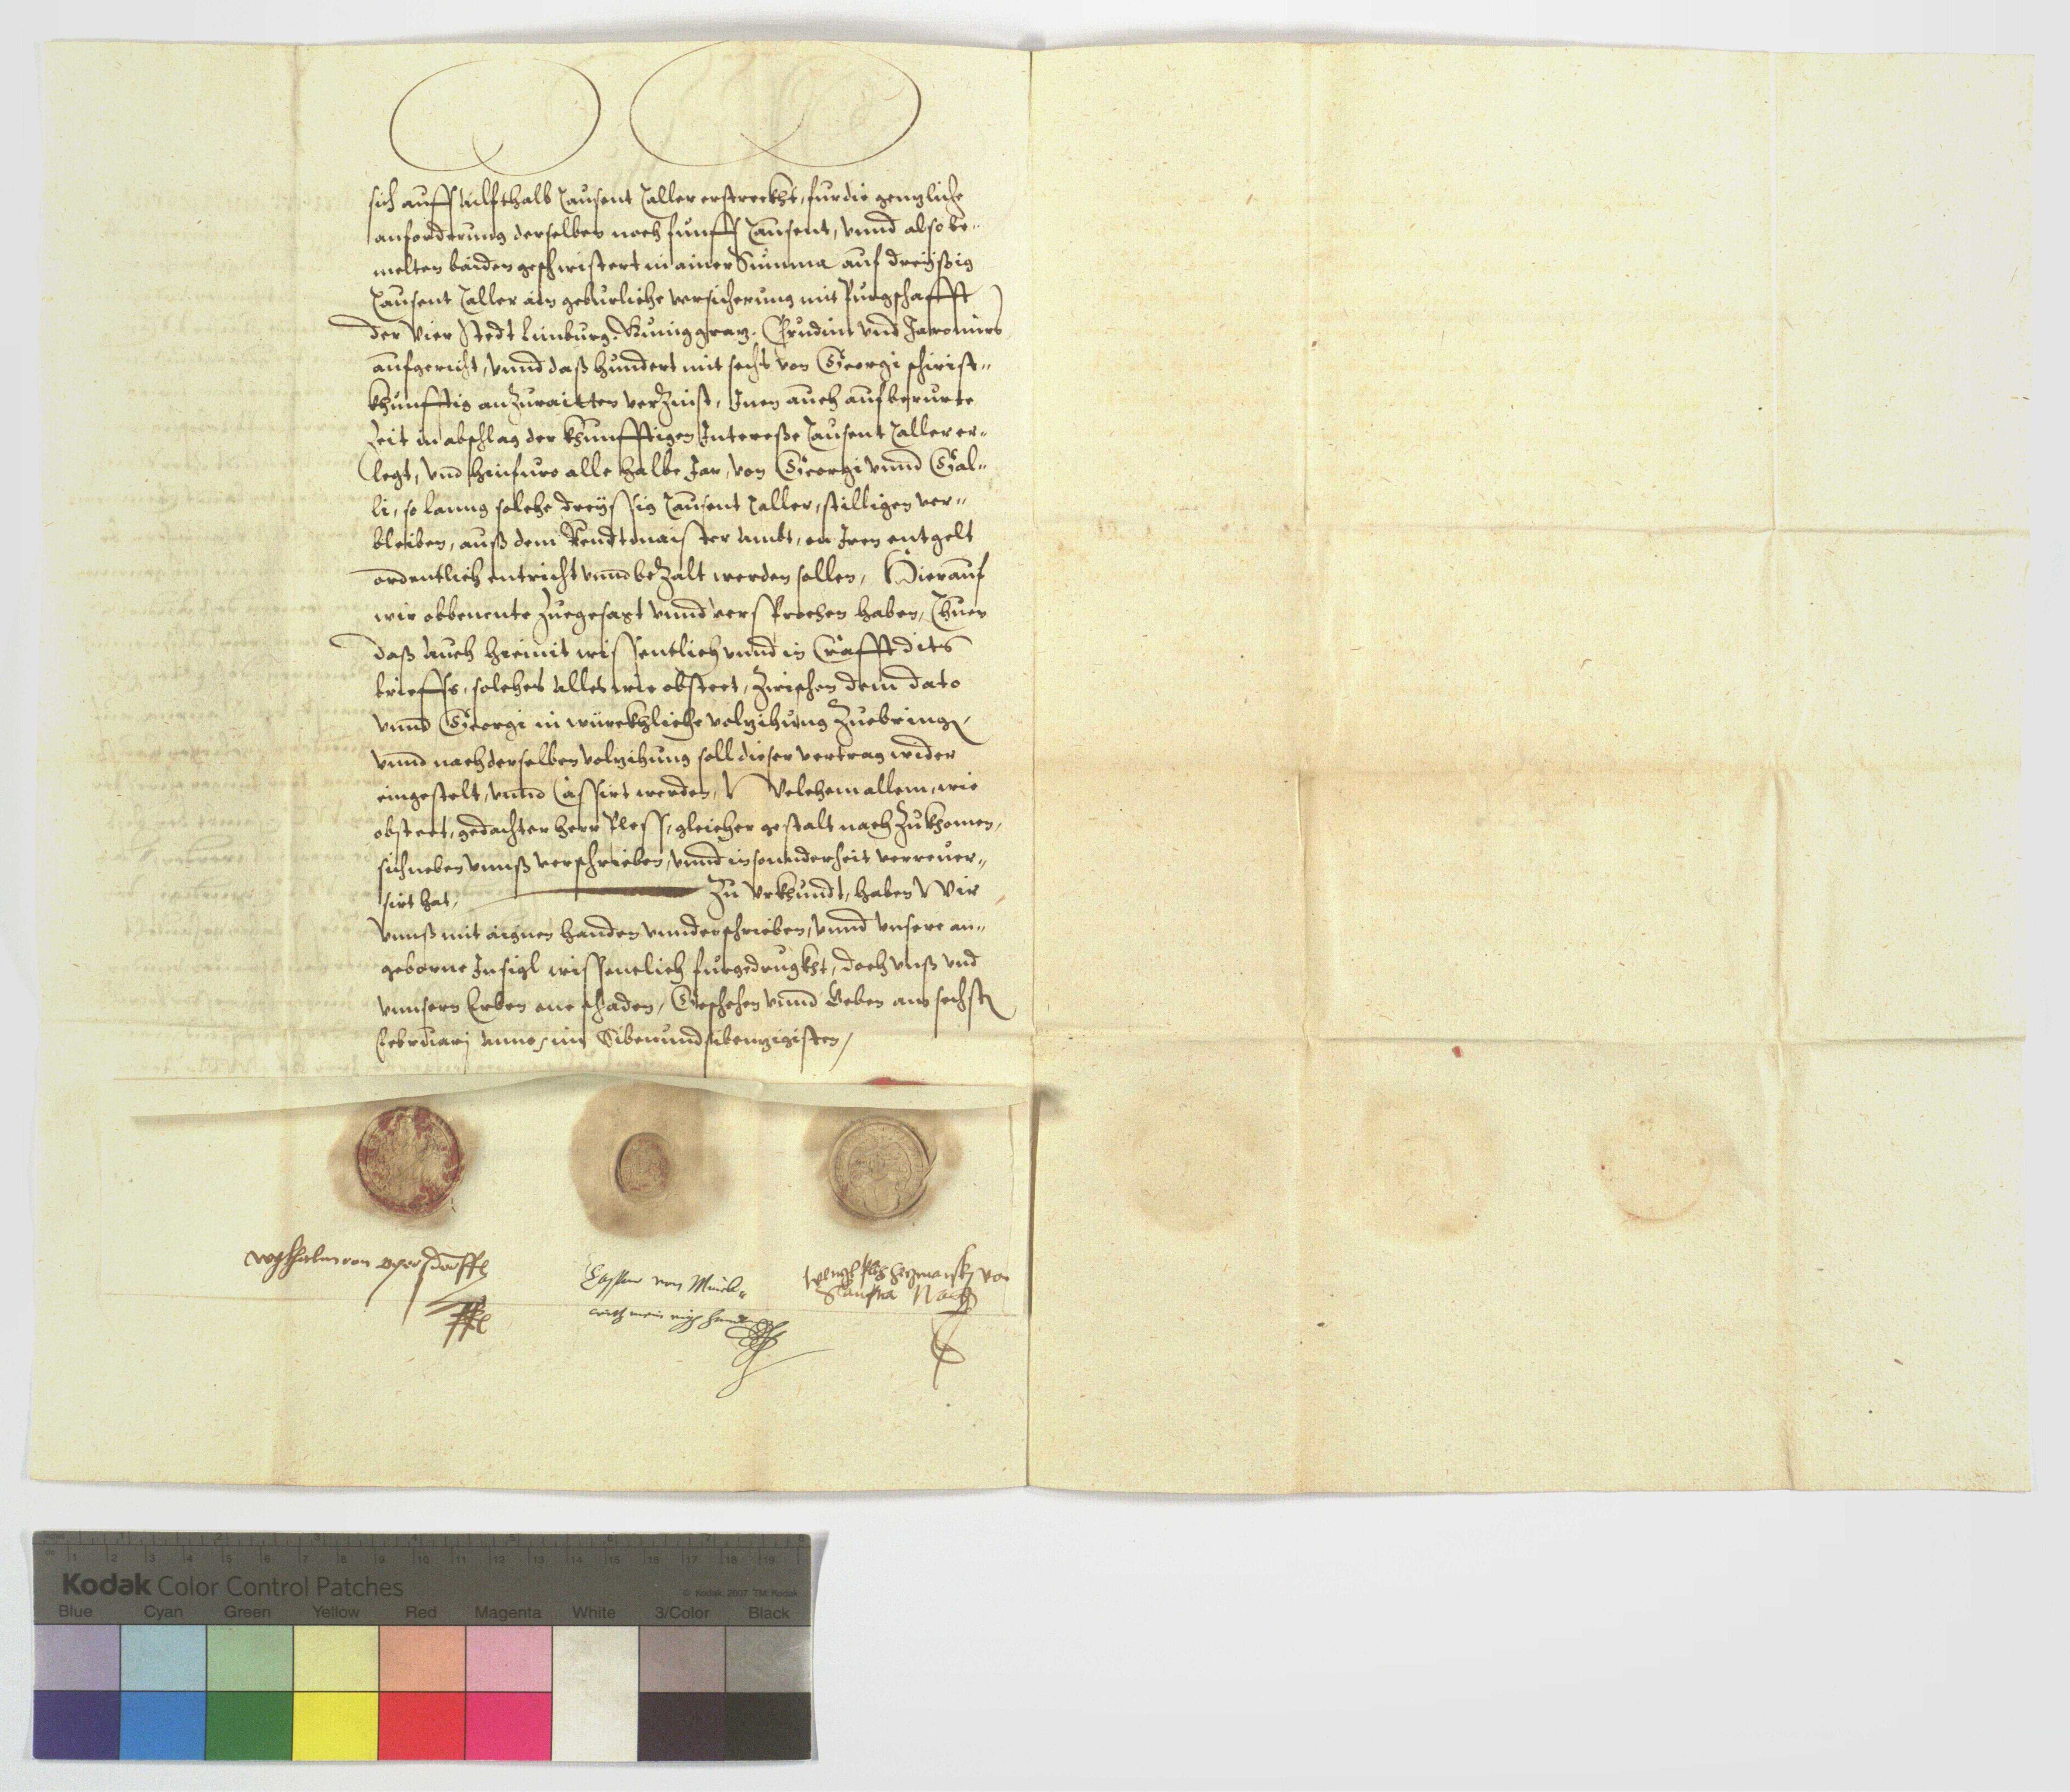 sich auff Ailfthalb Tausent Taller erstreckht, fur die genzliche
anforderung derselben noch funff Tausent, vnnd also be-
melten baiden geschwistert in ainer Summa auf dreyßig
Tausent Taller ain geburliche versicherung mit Purgschafft
der vier Stedt Limburg, Kuniggraz, Crudim vnd Jaromirs
aufgericht, vnnd daß hundert mit sechs von Georgi schirist-
khunfftig anzuraitten verzinst, Inen auch auf berurte
Zeit in abschlag der khunfftigen Interesse Tausent Taller er-
legt, vnd hinfuro alle halbe Jar, von Georgi vnnd Gal-
li, so lanng solche dreyssig Tausent Taller, stilligen ver-
bleiben, auß dem Rendtmaister Ambt, on Iren entgelt
ordentlich entricht vnnd bezalt werden sollen, Hierauf
wir obbenente zuegesagt vnnd versprochen haben, Thuen
daß auch hiemit wissentlich vnnd in Crafft dits
brieffs, solches alles wie obsteet, zwischen dem dato
vnnd Georgi in würckhliche volzihung zuebringen,
vnnd nach derselben volzihung soll dieser vertrag wider
eingestelt, vnnd Cassirt werden, Welchem allem, wie
obsteet, gedachter herr Pless, gleicher gestalt nach zukhomen,
sich neben vnnß verschrieben, vnnd in sonnderheit verreuer-
sirt hat, Zu Vrkhundt, haben Wir
vnnß mit aignen handen vnnderschrieben, vnnd vnsere an-
geborne Insigl wissentlich furgedrugkht, doch vnß vnd
vnnsern Erben one schaden, Geschehen vnnd Geben am sechsten
Februarj Anno, im Sibenundsibenzigisten,
Wylhelm von opersdorff
Caspar von Minck-
witz mein aigen handt
Wenzl Ples Herzmansky von
Slaupna
Kodak Color Control Patches
© Kodak, 2007 TM: Kodak
Blue Cyan Green Yellow Red Magenta White 3/Color Black